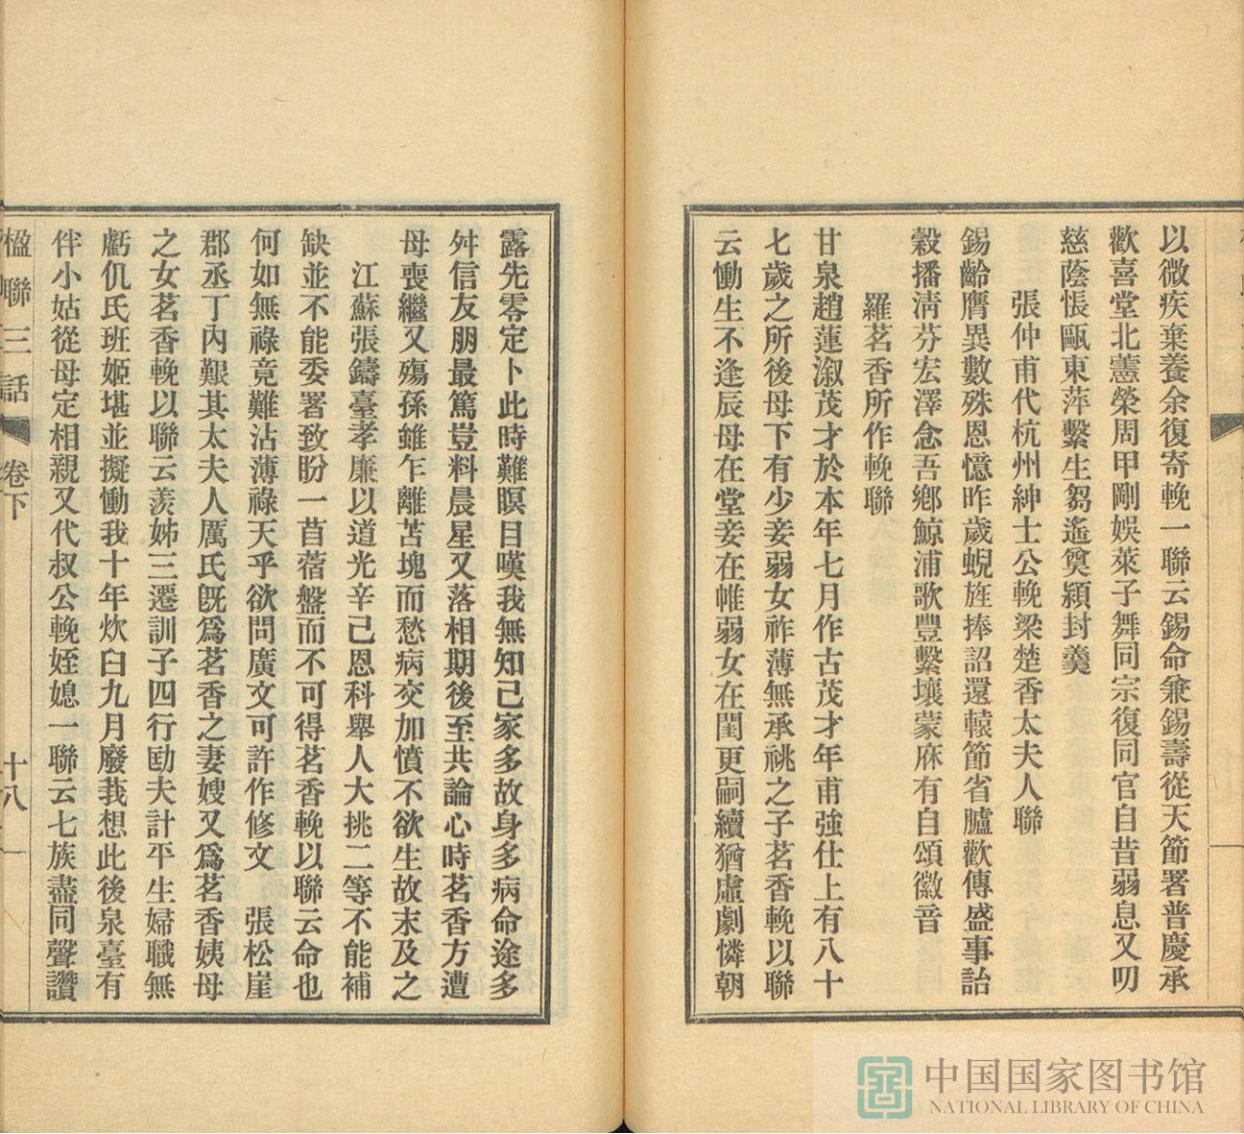 以微疾棄養余復寄輓一聯云錫命兼錫壽從天節署普慶承
歡喜堂北藼榮周甲剛娛萊子舞同宗復同官自昔弱息又叨
慈蔭悵甌東萍繫生芻遙奠潁封羹
張仲甫代杭州紳士公輓梁楚香太夫人聯
錫齡膺異數殊恩憶昨歲蜺旌捧詔還轅節省臚歡傳盛事詒
穀播淸芬宏澤念吾鄕鯨浦歌豐繫壤蒙庥有自頌徽音
羅茗香所作輓聯
甘泉趙蓮溆茂才於本年七月作古茂才年甫強仕上有八十
七歲之所後母下有少妾弱女祚薄無承祧之子茗香輓以聯
云慟生不逢辰母在堂妾在帷弱女在閨更嗣續猶虛劇憐朝
露先零定卜此時難瞑目嘆我無知己家多故身多病命途多
舛信友朋最篤豈料晨星又落相期後至共論心時茗香方遭
母喪繼又殤孫雖乍離苫塊而愁病交加憤不欲生故末及之
江蘇張鑄臺孝廉以道光辛己恩科舉人大挑二等不能補
缺並不能委署致盼一苜蓿盤而不可得茗香輓以聯云命也
何如無祿竟難沾薄祿天乎欲問廣文可許作修文 張松崖
郡丞丁內艱其太夫人厲氏旣爲茗香之妻嫂又爲茗香姨母
之女茗香輓以聯云羨姊三遷訓子四行勖夫計平生婦職無
虧仉氏班姬堪並擬慟我十年炊臼九月廢莪想此後泉臺有
伴小姑從母定相親又代叔公輓姪媳一聯云七族盡同聲讚
楹聯三話 卷下 十八
中国国家图书馆
NATIONAL LIBRARY OF CHINA